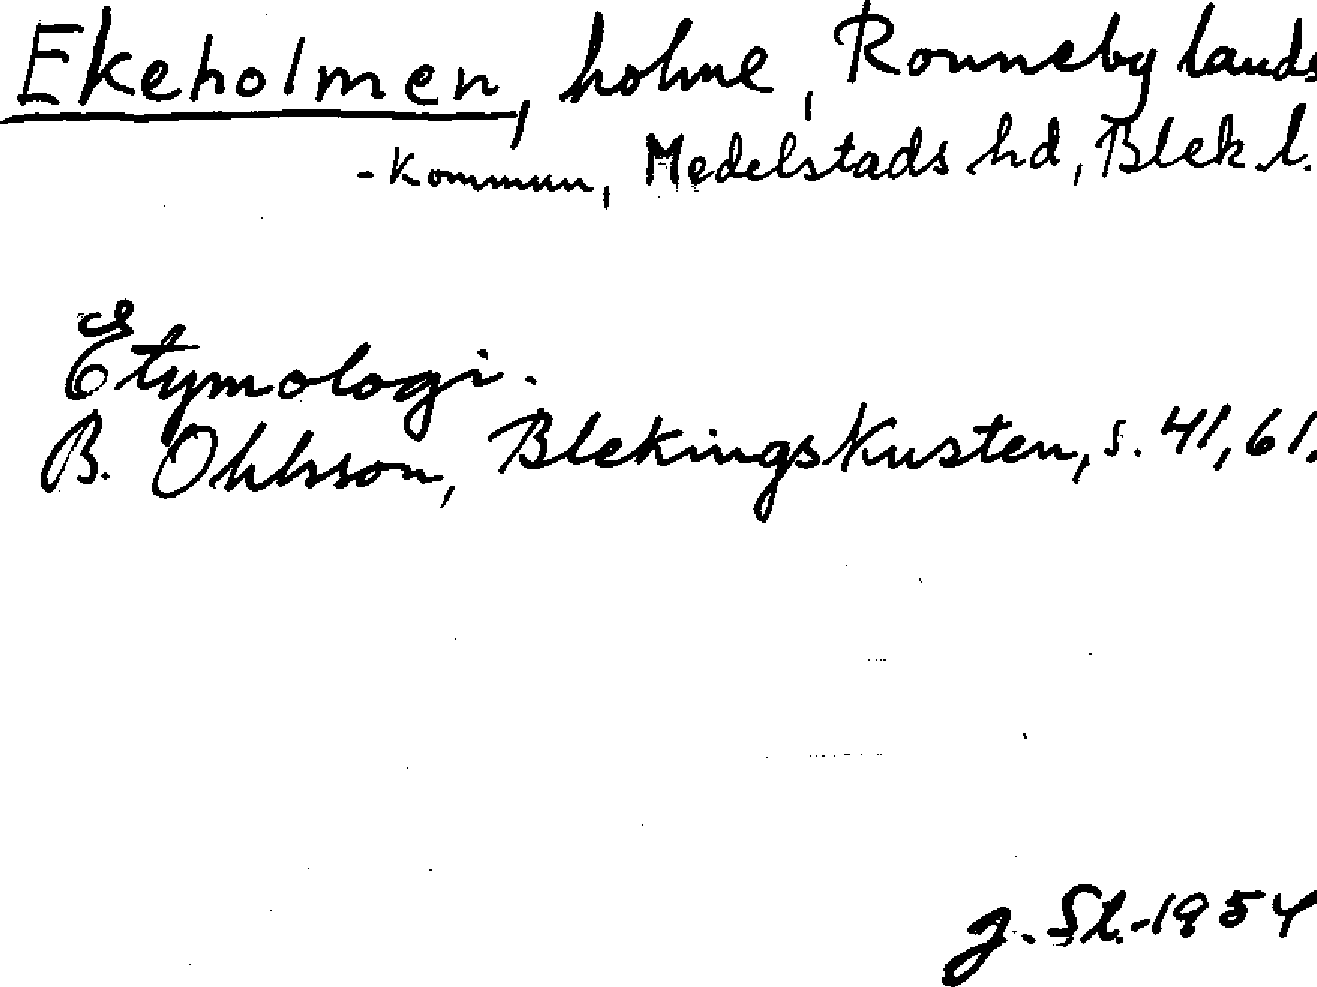 Ekeholmen, holme, Ronneby lands
-kommun, Medelstads hd, Blek. l.
Etymologi.
B. Ohlsson, Blekingskusten, s. 41, 61.
1954